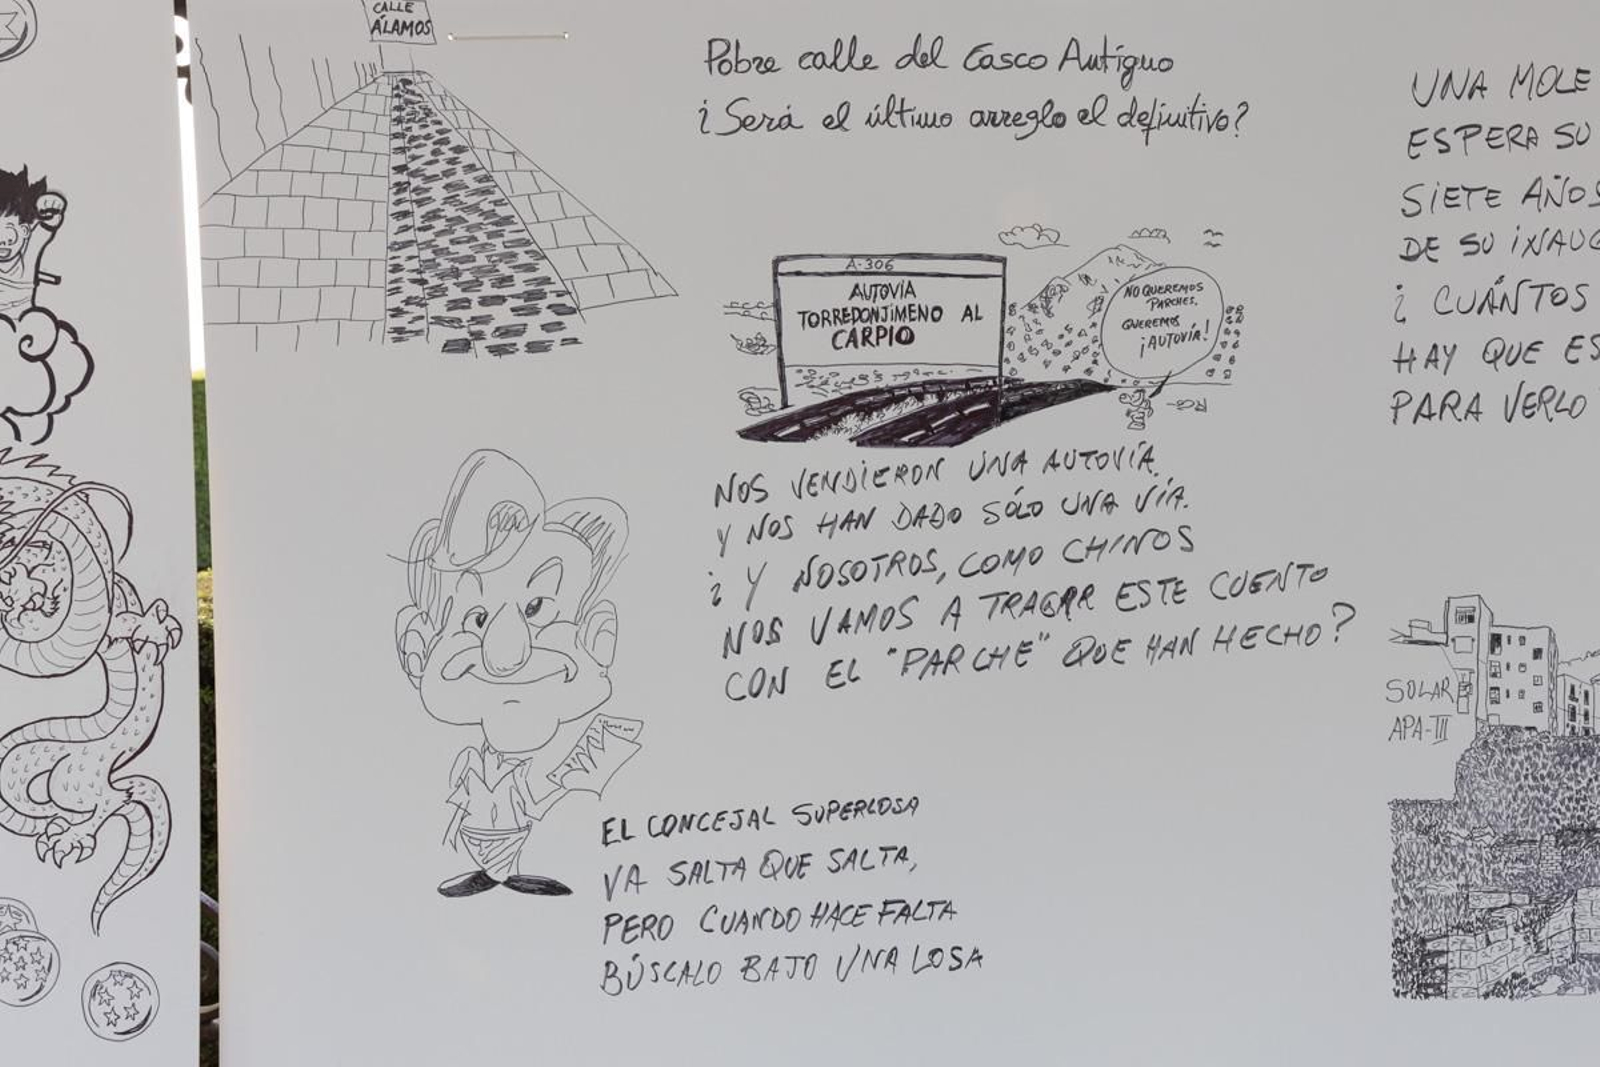 CALLE
ÁLAMOS
Pobre calle del Casco Antiguo
¿Será el último arreglo el definitivo?
A-306
AUTOVÍA
TORREDONJIMENO AL
CARPIO
NO QUEREMOS
PARCHES.
QUEREMOS
¡AUTOVÍA!
NOS VENDIERON UNA AUTOVÍA
Y NOS HAN DADO SÓLO UNA VÍA.
¿Y NOSOTROS, COMO CHINOS
NOS VAMOS A TRAGAR ESTE CUENTO
CON EL "PARCHE" QUE HAN HECHO?
EL CONCEJAL SUPERLOSA
VA SALTA QUE SALTA,
PERO CUANDO HACE FALTA
BÚSCALO BAJO UNA LOSA
UNA MOLE
ESPERA SU
SIETE AÑOS
DE SU INAUG
¿CUÁNTOS
HAY QUE ES
PARA VERLO
SOLAR
APA-III